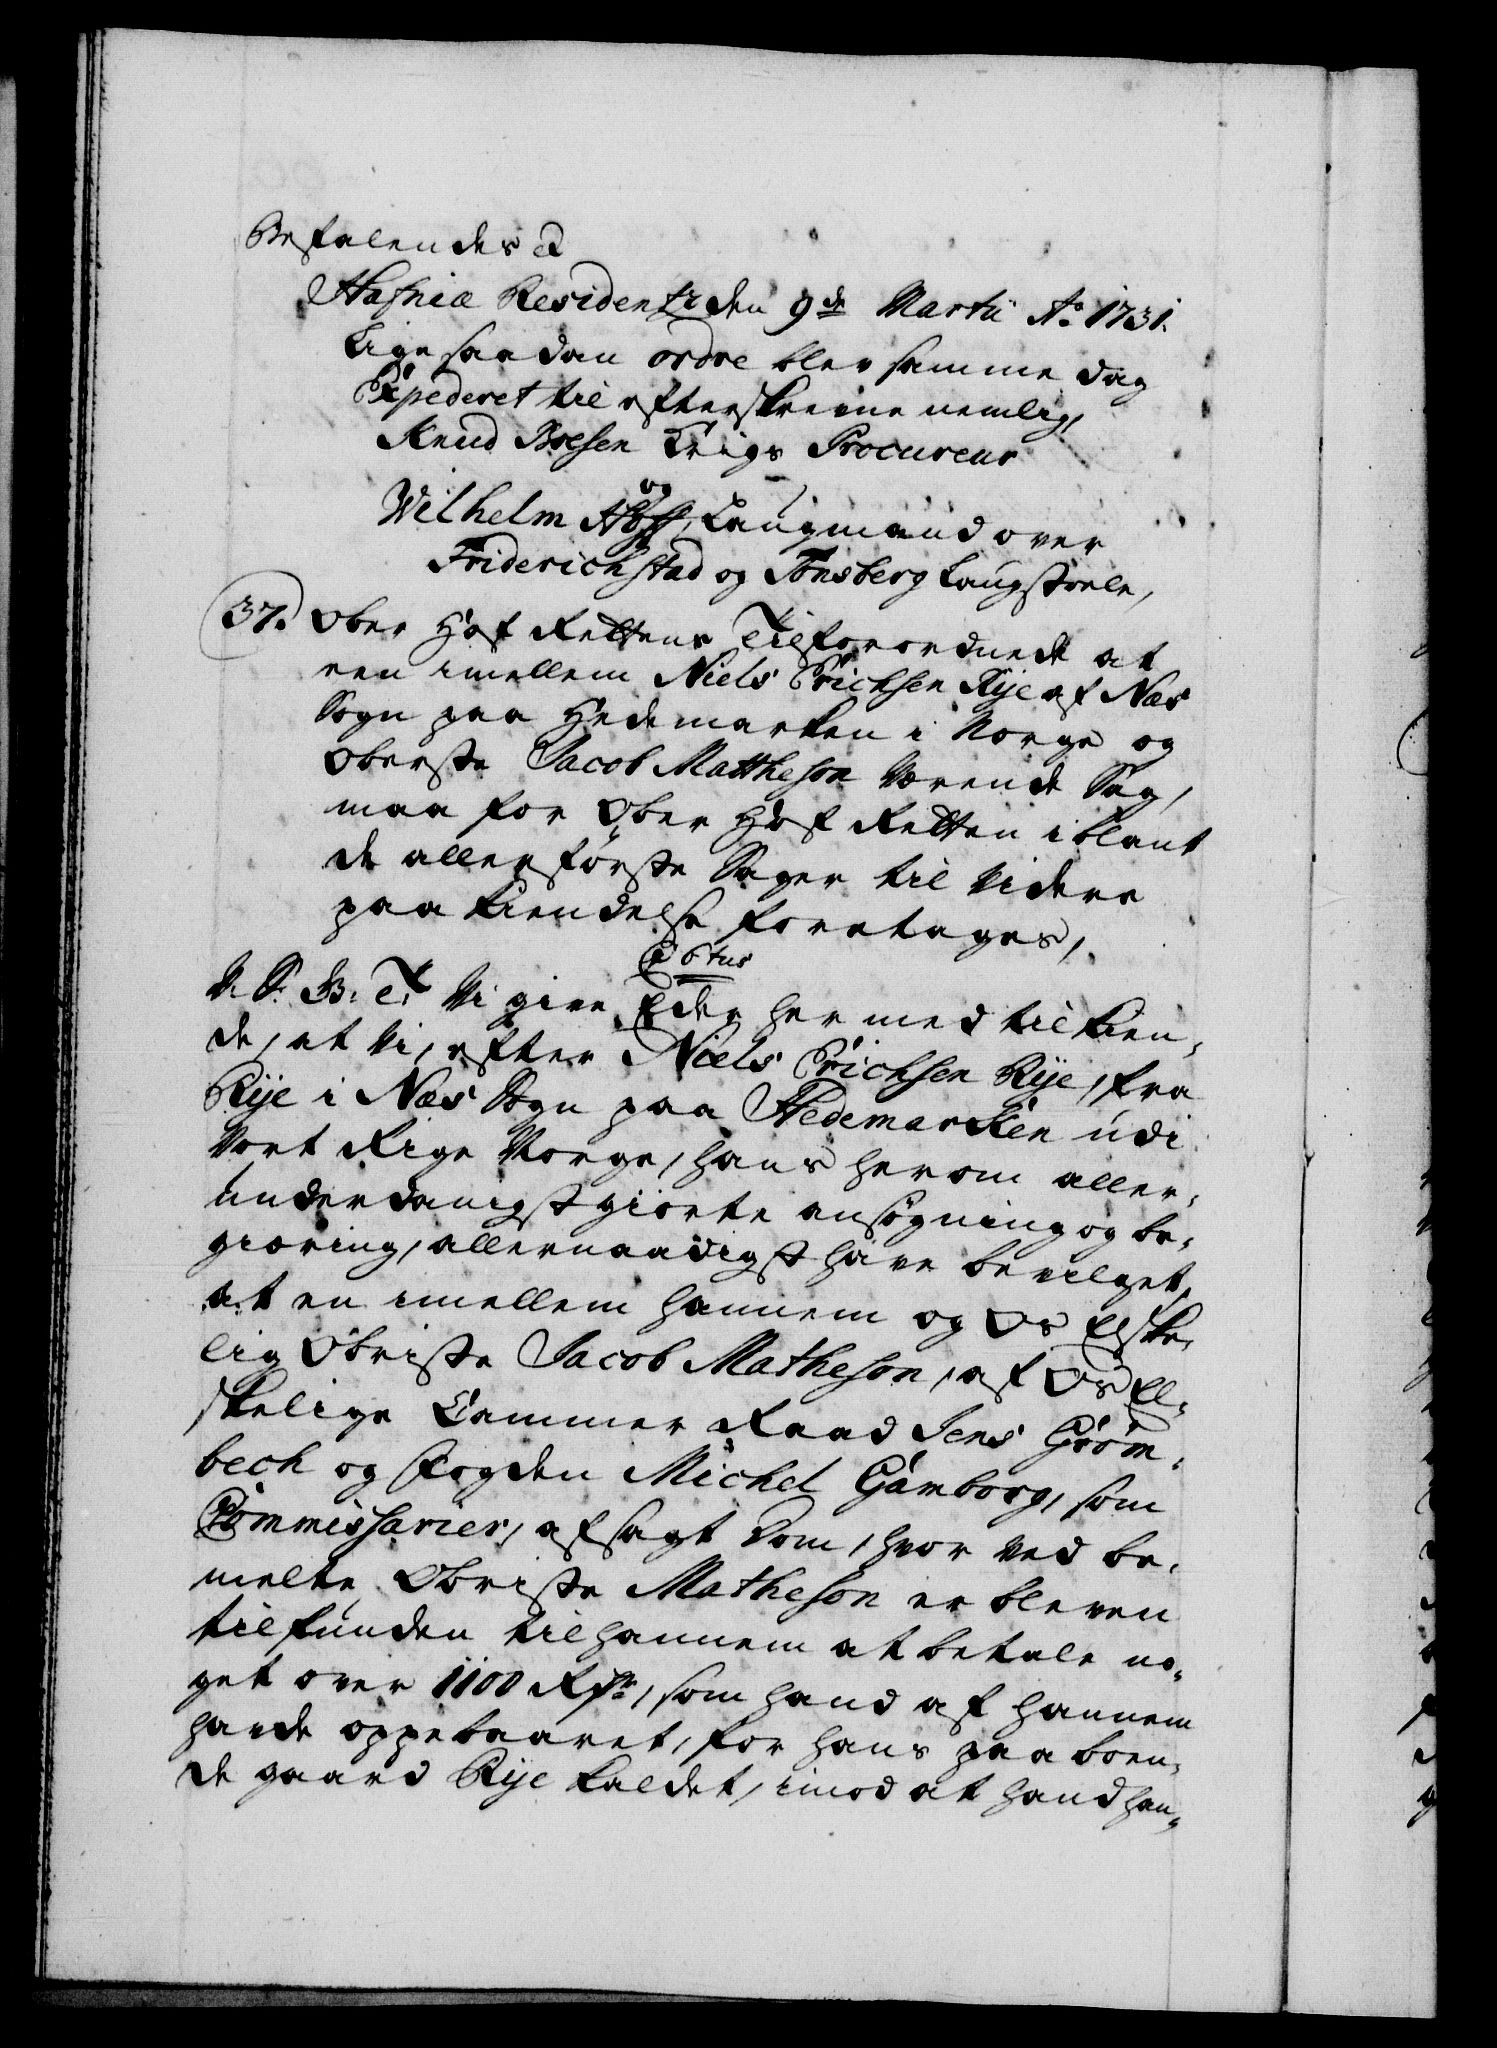 Befalendes &
Hafniæ Residentz den 9de Martii Ao 1731.
Lige saadan ordre blev samme dag
Expederet til efterskrevne nemlig,
Knud Boesen Krigs Procureur
og
Wilhelm Hoff, Laugmand over
Friderichstad og Tønsberg Laugstoele,
37. Ober Hof Rettens Tilforordnede at
een imellem Niels Erichsen Rije af Næs
Sogn paa Hedemarken i Norge og
Oberste Jacob Mattheson værende Sag,
maa for Ober Hof Retten iblant
de allerførste Sager til videre
paa kiendelse foretages,
C 6tus
V. S. B. T. Vi give Eder her med tilkien-
de, at Vi, efter Niels Erichsen Rije, fra
Rije i Næs Sogn paa Hedemarken udi
Vort Rige Norge, hans herom aller-
underdanigst giorte ansøgning og be-
giæring, allernaadigst have bevilget,
at en imellem hannem og Os Elske-
lig Obriste Jacob Matheson, af Os El-
skelige Cammer Raad Jens Grøn-
bech og Fogden Michel Gamborg, som
Commissarier, afsagt Dom, hvor ved be-
melte Obriste Matheson er bleven
tilfunden til hannem at betale no-
get over 1100 Rdr, som hand af hannem
hafde oppebaaret, for hans paa boen-
de gaard Rije kaldet, imod at hand han-